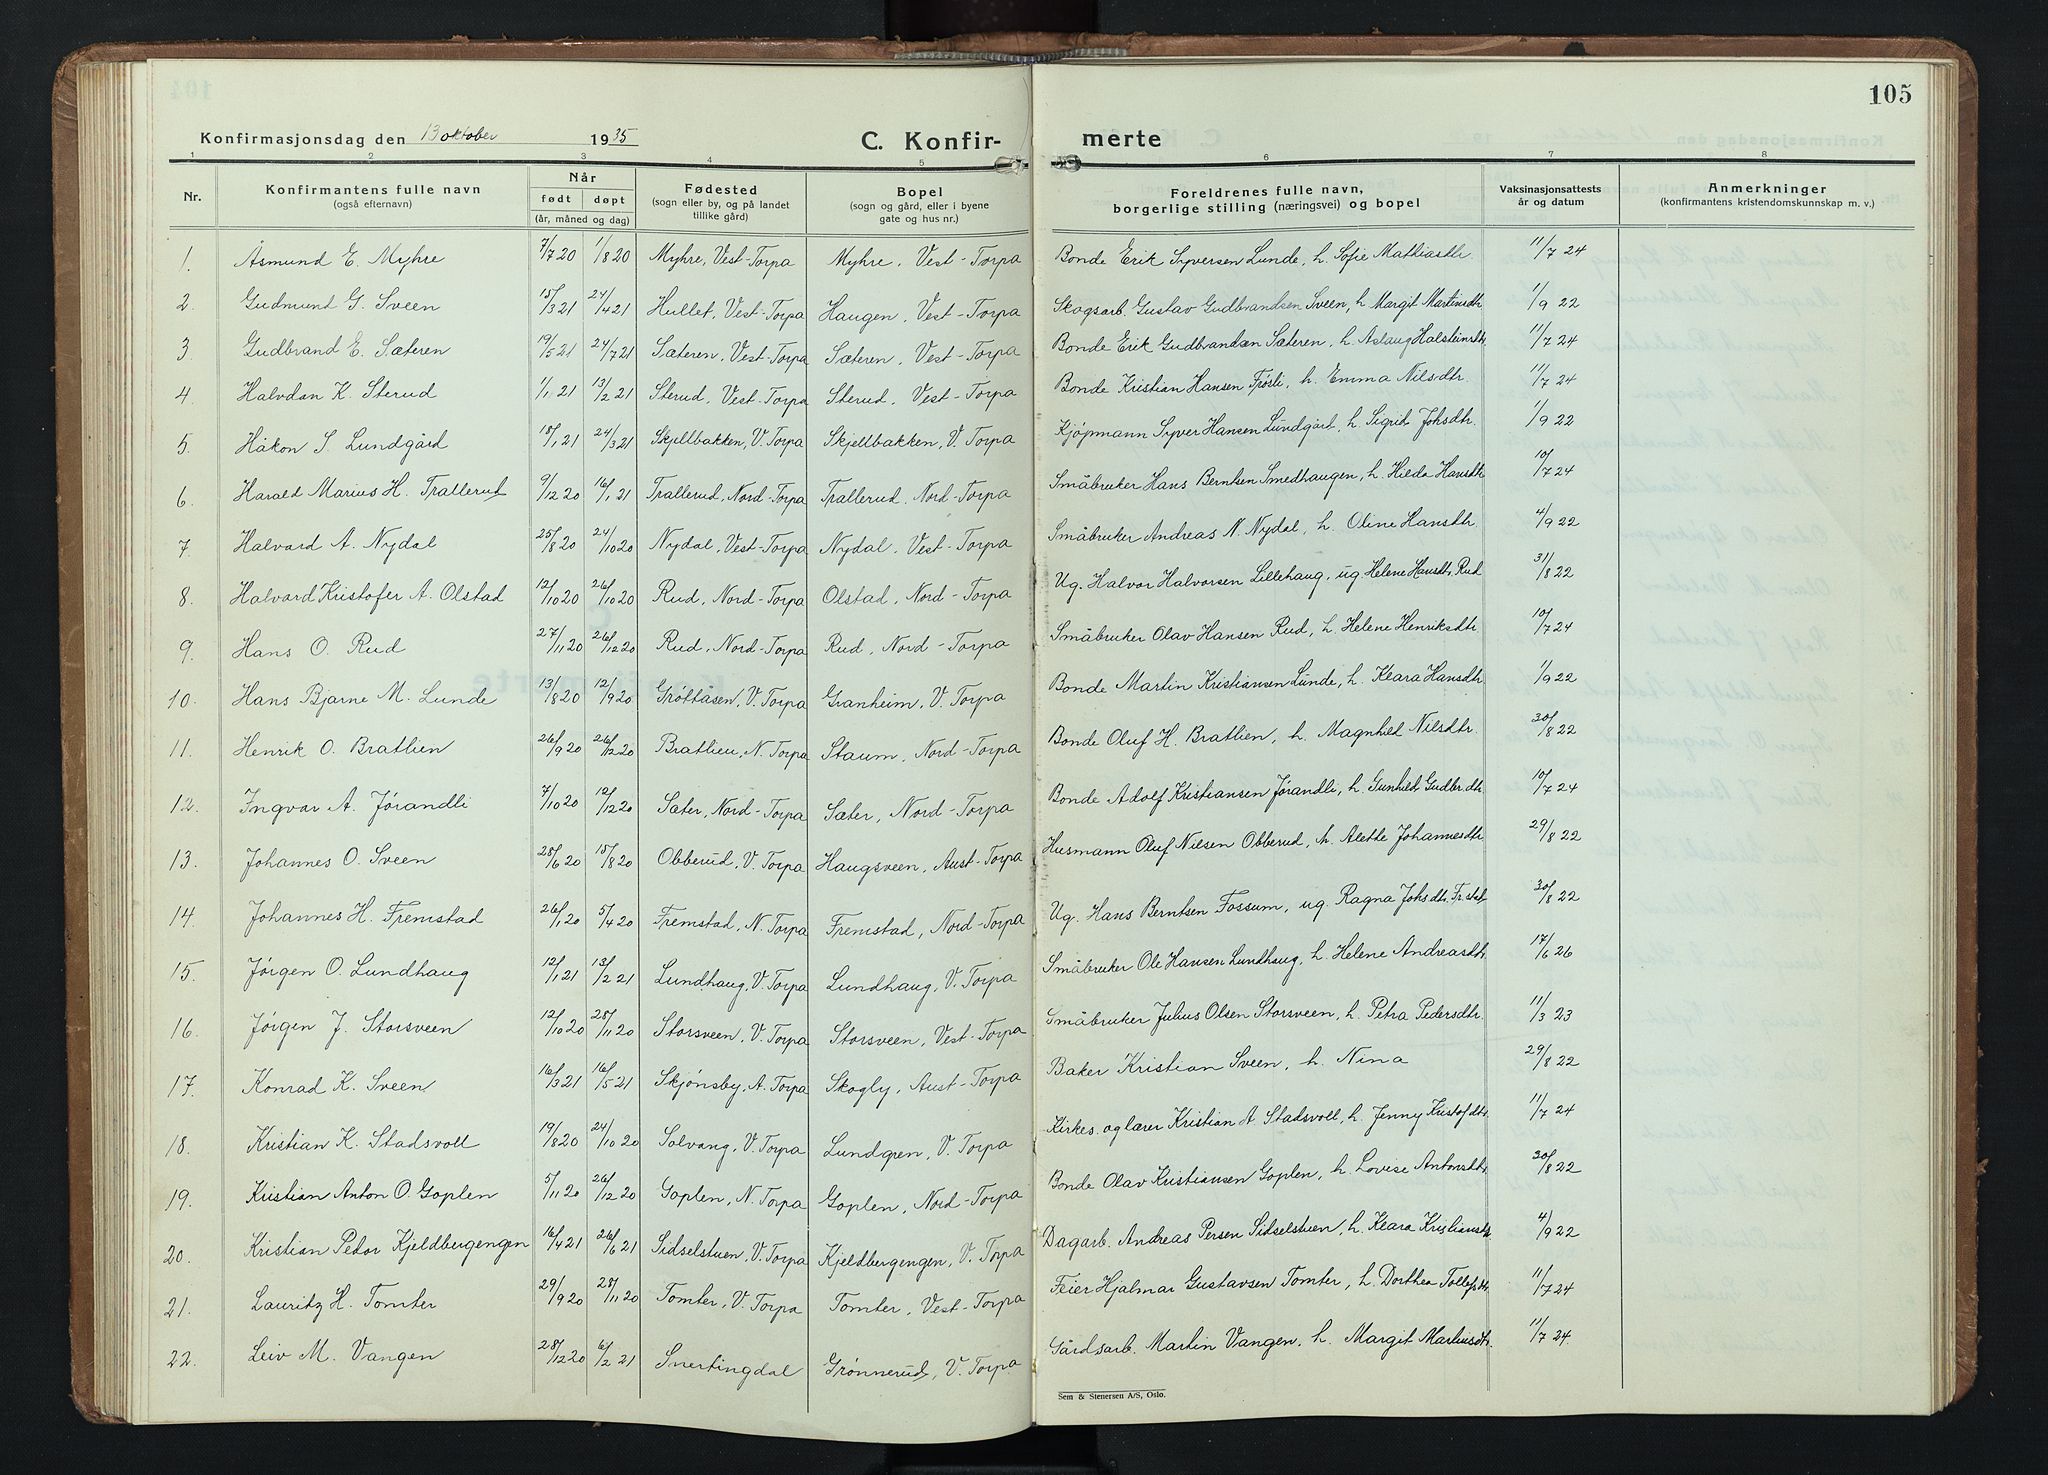 105
Konfirmasjonsdag den 13 oktober 1935 C. Konfir- merte
1 2 3 4 5 6 7 8
Nr. Konfirmantens fulle navn (også efternavn) Når født døpt (år, måned og dag) Fødested (sogn eller by, og på landet tillike gård) Bopel (sogn og gård, eller i byene gate og hus nr.) Foreldrenes fulle navn, borgerlige stilling (næringsvei) og bopel Vaksinasjonsattests år og datum Anmerkninger (konfirmantens kristendomskunnskap m. v.)
1. Åsmund E. Myhre 7/7 20 1/8 20 Myhre, Vest-Torpa Myhre, Vest-Torpa Bonde Erik Syversen Lunde, h. Sofie Mathiasdtr. 11/7 24
2. Gudmund G. Sveen 15/3 21 24/4 21 Hullet, Vest-Torpa Haugen, Vest-Torpa Skogsarb. Gustav Gudbrandsen Sveen, h. Margit Martinsdtr 1/9 22
3. Gudbrand E. Sæteren 19/5 21 24/7 21 Sæteren, Vest-Torpa Sæteren, Vest-Torpa Bonde Erik Gudbrandsen Sæteren, h. Aslaug Halsteinsdtr. 11/7 24
4. Halvdan K. Sterud 1/1 21 13/2 21 Sterud, Vest-Torpa Sterud, Vest-Torpa Bonde Kristian Hansen Frøsli, h. Emma Nilsdtr. 11/7 24
5. Håkon S. Lundgård 18/1 21 24/3 21 Skjellbakken, V. Torpa Skjellbakken, V. Torpa Kjøpmann Syver Hansen Lundgårt, h. Sigrid Johsdtr. 1/9 22
6. Harald Marius H. Trallerud 9/12 20 16/1 21 Trallerud, Nord-Torpa Trallerud, Nord-Torpa Småbruker Hans Berntsen Smedhaugen, h. Hilda Hansdtr 10/7 24
7. Halvard A. Nydal 25/8 20 24/10 20 Nydal, Vest-Torpa Nydal, Vest-Torpa Småbruker Andreas N. Nydal, h. Oline Hansdtr. 4/9 22
8. Halvard Kristofer A. Olstad 12/10 20 26/10 20 Rud, Nord-Torpa Olstad, Nord-Torpa Ug. Halvor Halvorsen Lillehaug, ug. Helene Hansdtr. Rud 31/8 22
9. Hans O. Rud 27/11 20 26/12 20 Rud, Nord-Torpa Rud, Nord-Torpa Småbruker Olav Hansen Rud, h. Helene Henriksdtr. 10/7 24
10. Hans Bjarne M. Lunde 13/8 20 12/9 20 Grøttåsen, V. Torpa Granheim, V. Torpa Bonde Martin Kristiansen Lunde, h. Klara Hansdtr 1/9 22
11. Henrik O. Bratlien 26/9 20 26/12 20 Bratlien, N. Torpa Staum, Nord-Torpa Bonde Oluf H. Bratlien, h. Magnhild Nilsdtr. 30/8 22
12. Ingvar A. Jørandli 7/10 20 12/12 20 Sæter, Nord-Torpa Sæter, Nord-Torpa Bonde Adolf Kristiansen Jørandli, h. Gunhild Gudbr.dtr. 10/7 24
13. Johannes O. Sveen 28/6 20 15/8 20 Obberud, V. Torpa Haugsveen, Aust-Torpa Husmann Oluf Nilsen Obberud, h. Alette Johannesdtr 29/8 22
14. Johannes H. Fremstad 26/1 20 5/4 20 Fremstad, N. Torpa Fremstad, Nord-Torpa Ug. Hans Berntsen Fossum, ug. Ragna Johsdtr. Fr.stad 30/8 22
15. Jørgen O. Lundhaug 12/1 21 13/2 21 Lundhaug, V. Torpa Lundhaug, V. Torpa Småbruker Ole Hansen Lundhaug, h. Helene Andreasdtr. 17/6 26
16. Jørgen J. Storsveen 12/10 20 28/11 20 Storsveen, V. Torpa Storsveen, Vest-Torpa Småbruker Julius Olsen Storsveen, h. Petra Pedersdtr. 11/3 23
17. Konrad K. Sveen 16/3 21 16/5 21 Skjønsby, A. Torpa Skogly, Aust-Torpa Baker Kristian Sveen, h. Nina 29/8 22
18. Kristian K. Stadsvoll 19/8 20 24/10 20 Solvang, V. Torpa Lundgren, V. Torpa Kirkes. og lærer Kristian A. Stadsvoll, h. Jenny Kristofdtr. 11/7 24
19. Kristian Anton O. Goplen 5/11 20 26/12 20 Goplen, N. Torpa Goplen, Nord-Torpa Bonde Olav Kristiansen Goplen, h. Lovise Antonsdtr. 30/8 22
20. Kristian Peder Kjeldbergengen 16/4 21 26/6 21 Sidselstuen, V. Torpa Kjeldbergengen, V. Torpa Dagarb. Andreas Persen Sidselstuen, h. Klara Kristiansdtr 4/9 22
21. Lauritz H. Tomter 29/9 20 28/11 20 Tomter, V. Torpa Tomter, Vest-Torpa Feier Hjalmar Gustavsen Tomter, h. Dorthea Tollefsdtr. 11/7 24
22. Leiv M. Vangen 28/12 20 6/2 21 Snertingdal Grønnerud, V. Torpa Gårdsarb. Martin Vangen, h. Margit Mathisdtr. 11/7 24
Sem & Stenersen A/S, Oslo.